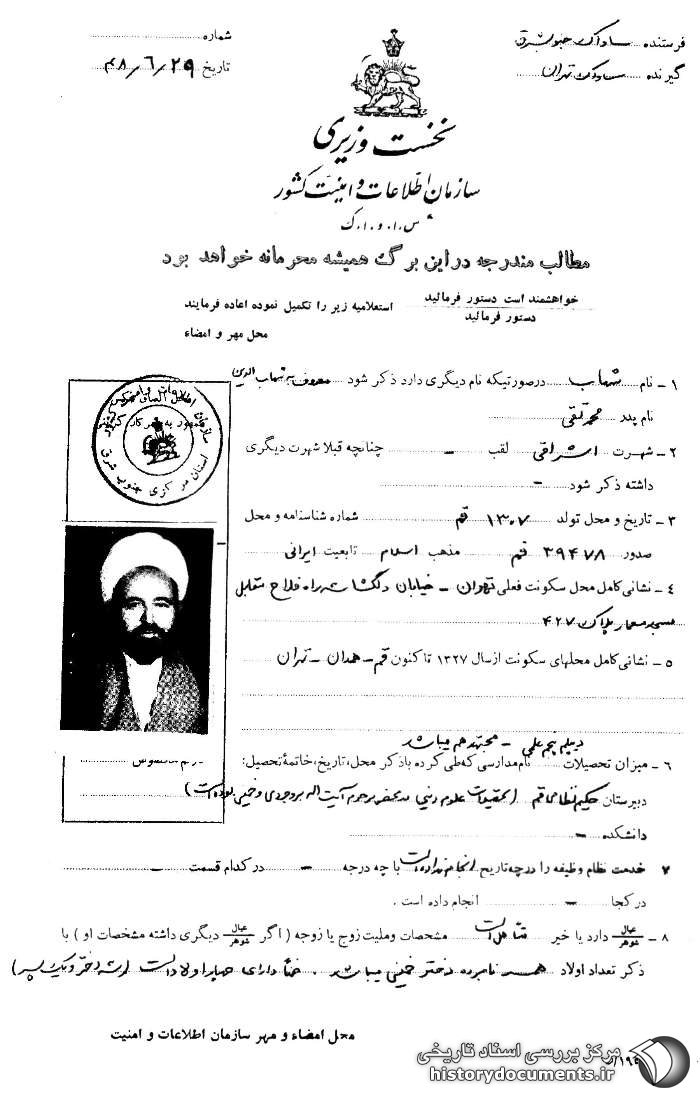 فرستنده ساواک جنوبشرق
گیرنده ساواک تهران
شماره
تاریخ ۴۸/۶/۲۹
نخست وزیری
سازمان اطلاعات و امنیت کشور
س.ا.و.ا.ک
مطالب مندرجه در این برگ همیشه محرمانه خواهد بود
خواهشمند است دستور فرمائید
دستور فرمائید
استعلامیه زیر را تکمیل نموده اعاده فرمایند
محل مهر و امضاء
۱ - نام شهاب درصورتیکه نام دیگری دارد ذکر شود معروف به شهاب الدین
نام پدر محمدتقی
۲ - شهرت اشراقی لقب - چنانچه قبلا شهرت دیگری
داشته ذکر شود -
۳ - تاریخ و محل تولد ۱۳۰۷ قم شماره شناسنامه و محل
صدور ۳۹۴۷۸ قم مذهب اسلام تابعیت ایرانی
۴ - نشانی کامل محل سکونت فعلی تهران - خیابان دلگشا سه راه فلاح مقابل
مسجد معمار پلاک ۴۲۷
۵ - نشانی کامل محلهای سکونت از سال ۱۳۲۷ تا کنون قم - همدان - تهران
دیپلم پنجم علمی - مجتهد هم میباشد
۶ - میزان تحصیلات نام مدارسی که طی کرده با ذکر محل، تاریخ، خاتمهٔ تحصیل:
دبیرستان حکیم نظامی قم (تحصیلات علوم دینی در محضر مرحوم آیت اله بروجردی و خمینی بوده است)
دانشکده -
۷ خدمت نظام وظیفه را درچه تاریخ انجام نداده است با چه درجه - در کدام قسمت -
در کجا - انجام داده است .
۸ - عیال
شوهر
دارد یا خیر متاهل است مشخصات و ملیت زوج یا زوجه ( اگر عیال
شوهر
دیگری داشته مشخصات او ) با
ذکر تعداد اولاد همسر نامبرده دختر خمینی میباشد . ضمنا دارای چهار اولاد است (سه دختر و یک پسر)
محل امضاء و مهر سازمان اطلاعات و امنیت
سازمان اطلاعات و امنیت کشور
استان مرکزی جنوب شرق
مرکز بررسی اسناد تاریخی
historydocuments.ir